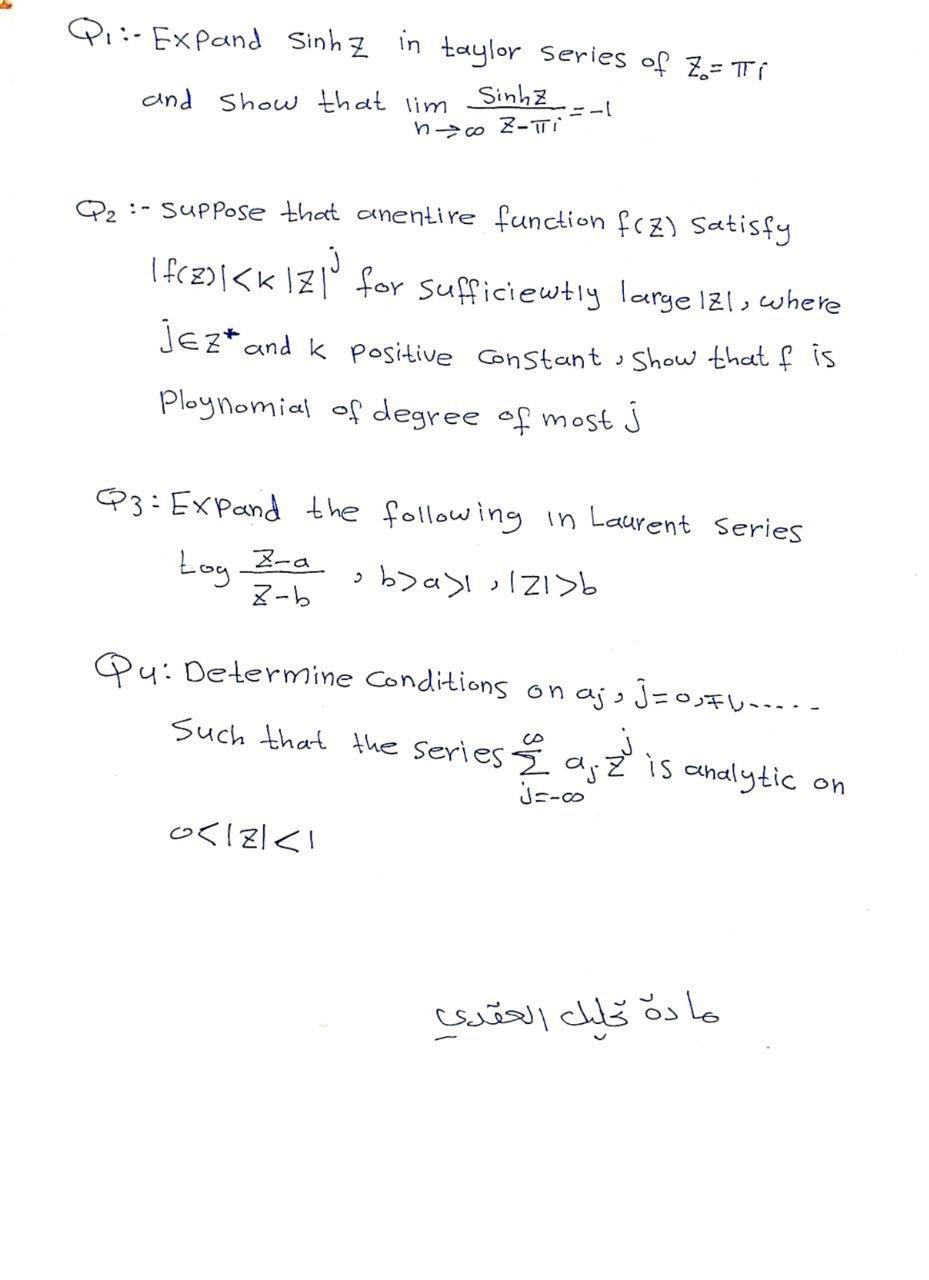 Q1:- Expand sinhz in taylor series of z₀=πi
and show that lim n→∞ sinhz/z-πi = -1
Q2:- suppose that anentire function f(z) satisfy
|f(z)|<k|z|^j for sufficiewtly large |z|, where
j∈z⁺ and k positive constant, show that f is
Ploynomial of degree of most j
Q3: Expand the following in Laurent series
Log z-a/z-b , b>a>1 , |z|>b
Q4: Determine conditions on aⱼ, j=0,∓1,.....
Such that the series ∑ j=-∞ ∞ aⱼz^j is analytic on
0<|z|<1
مادة تحليل العقدي